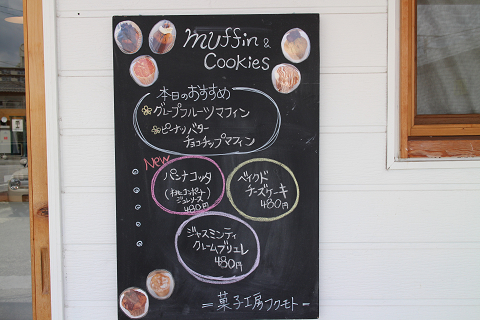 muffin &
Cookies
本日のおすすめ
グレープフルーツマフィン
ピーナツバター
チョコチップマフィン
New
パンナコッタ
480円
ベイクド
チーズケーキ
480円
ジャスミンティ
クレームブリュレ
480円
=菓子工房フクモト-